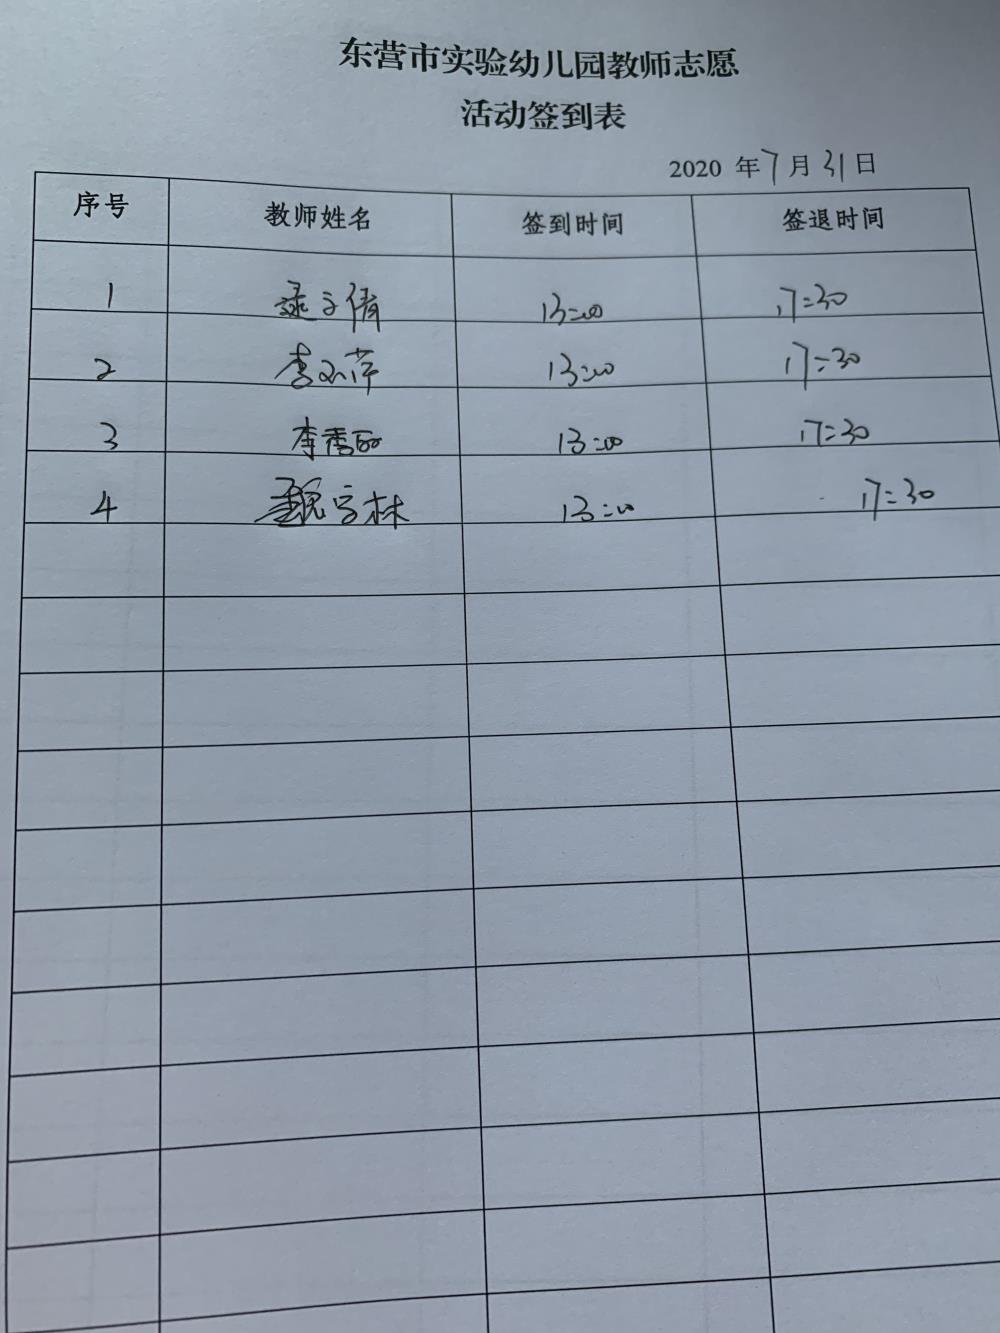 东营市实验幼儿园教师志愿
活动签到表
2020 年 7 月 31 日
序号 教师姓名 签到时间 签退时间
1 子倩 13:00 17:30
2 李 萍 13:00 17:30
3 李秀丽 13:00 17:30
4 魏 林 13:00 17:30